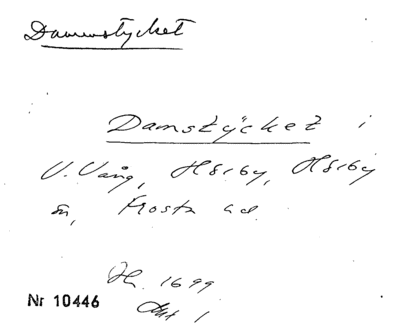 Dammstycket
Damstÿcket i
V. Vång, Hörby, Hörby
sn, Frosta hd.
Jb. 1699
Nr 10446
Akt 1